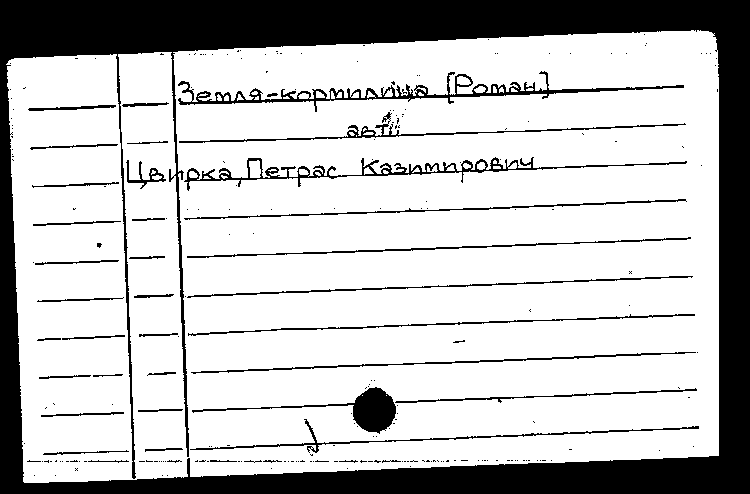 Земля-кормилица [Роман.]
авт.
Цвирка, Петрас Казимирович